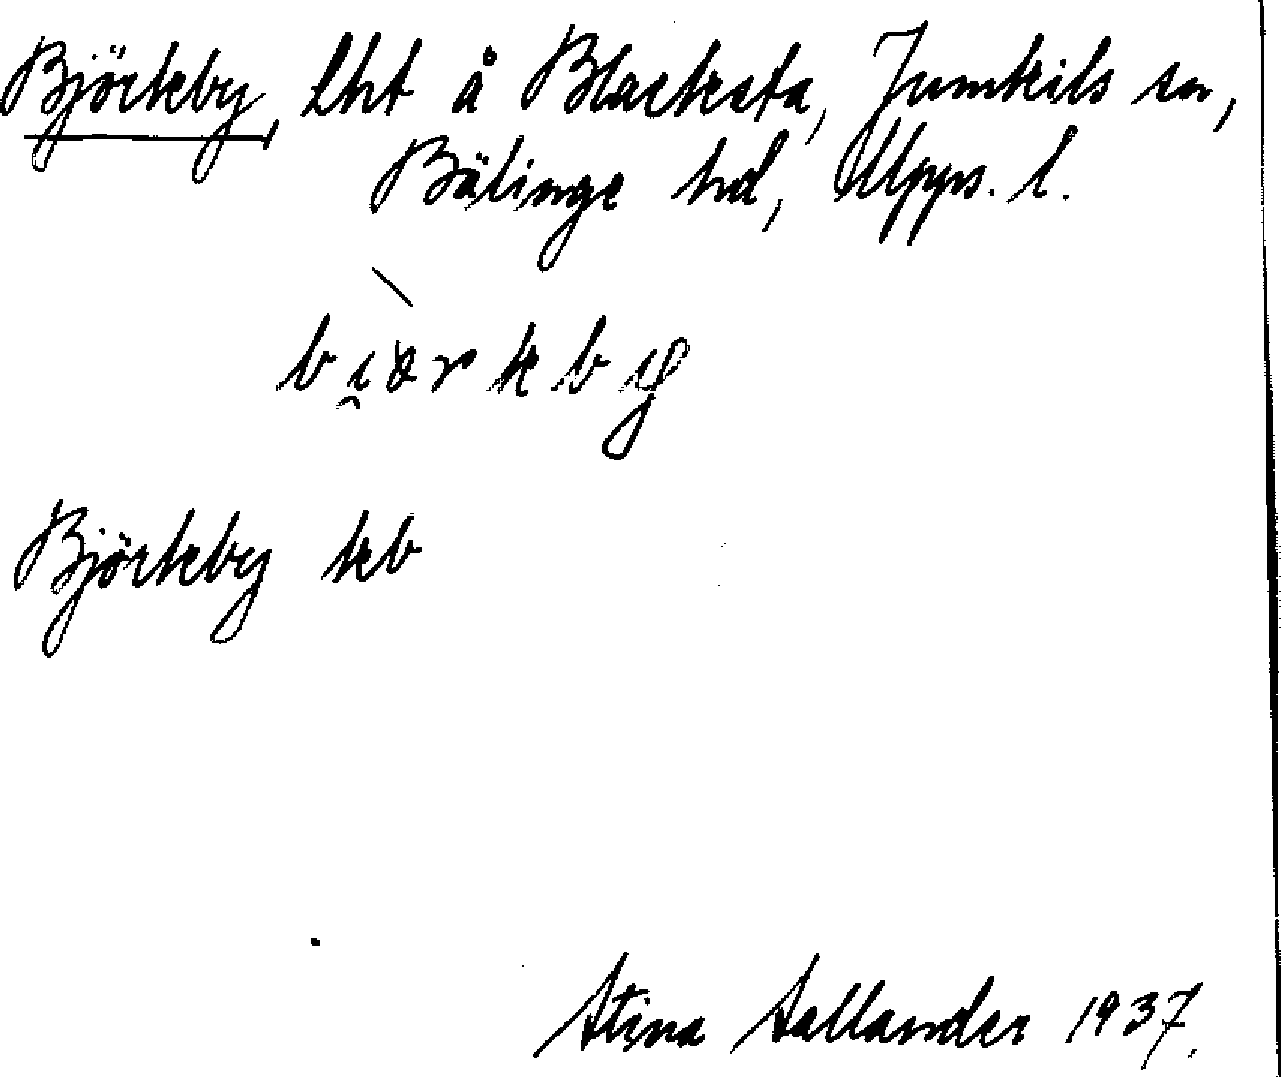 Björkby, Lht å Blacksta, Jumkils sn,
Bälinge hd, Upps. l.
Björkby kb
Stina Sallander 1937.